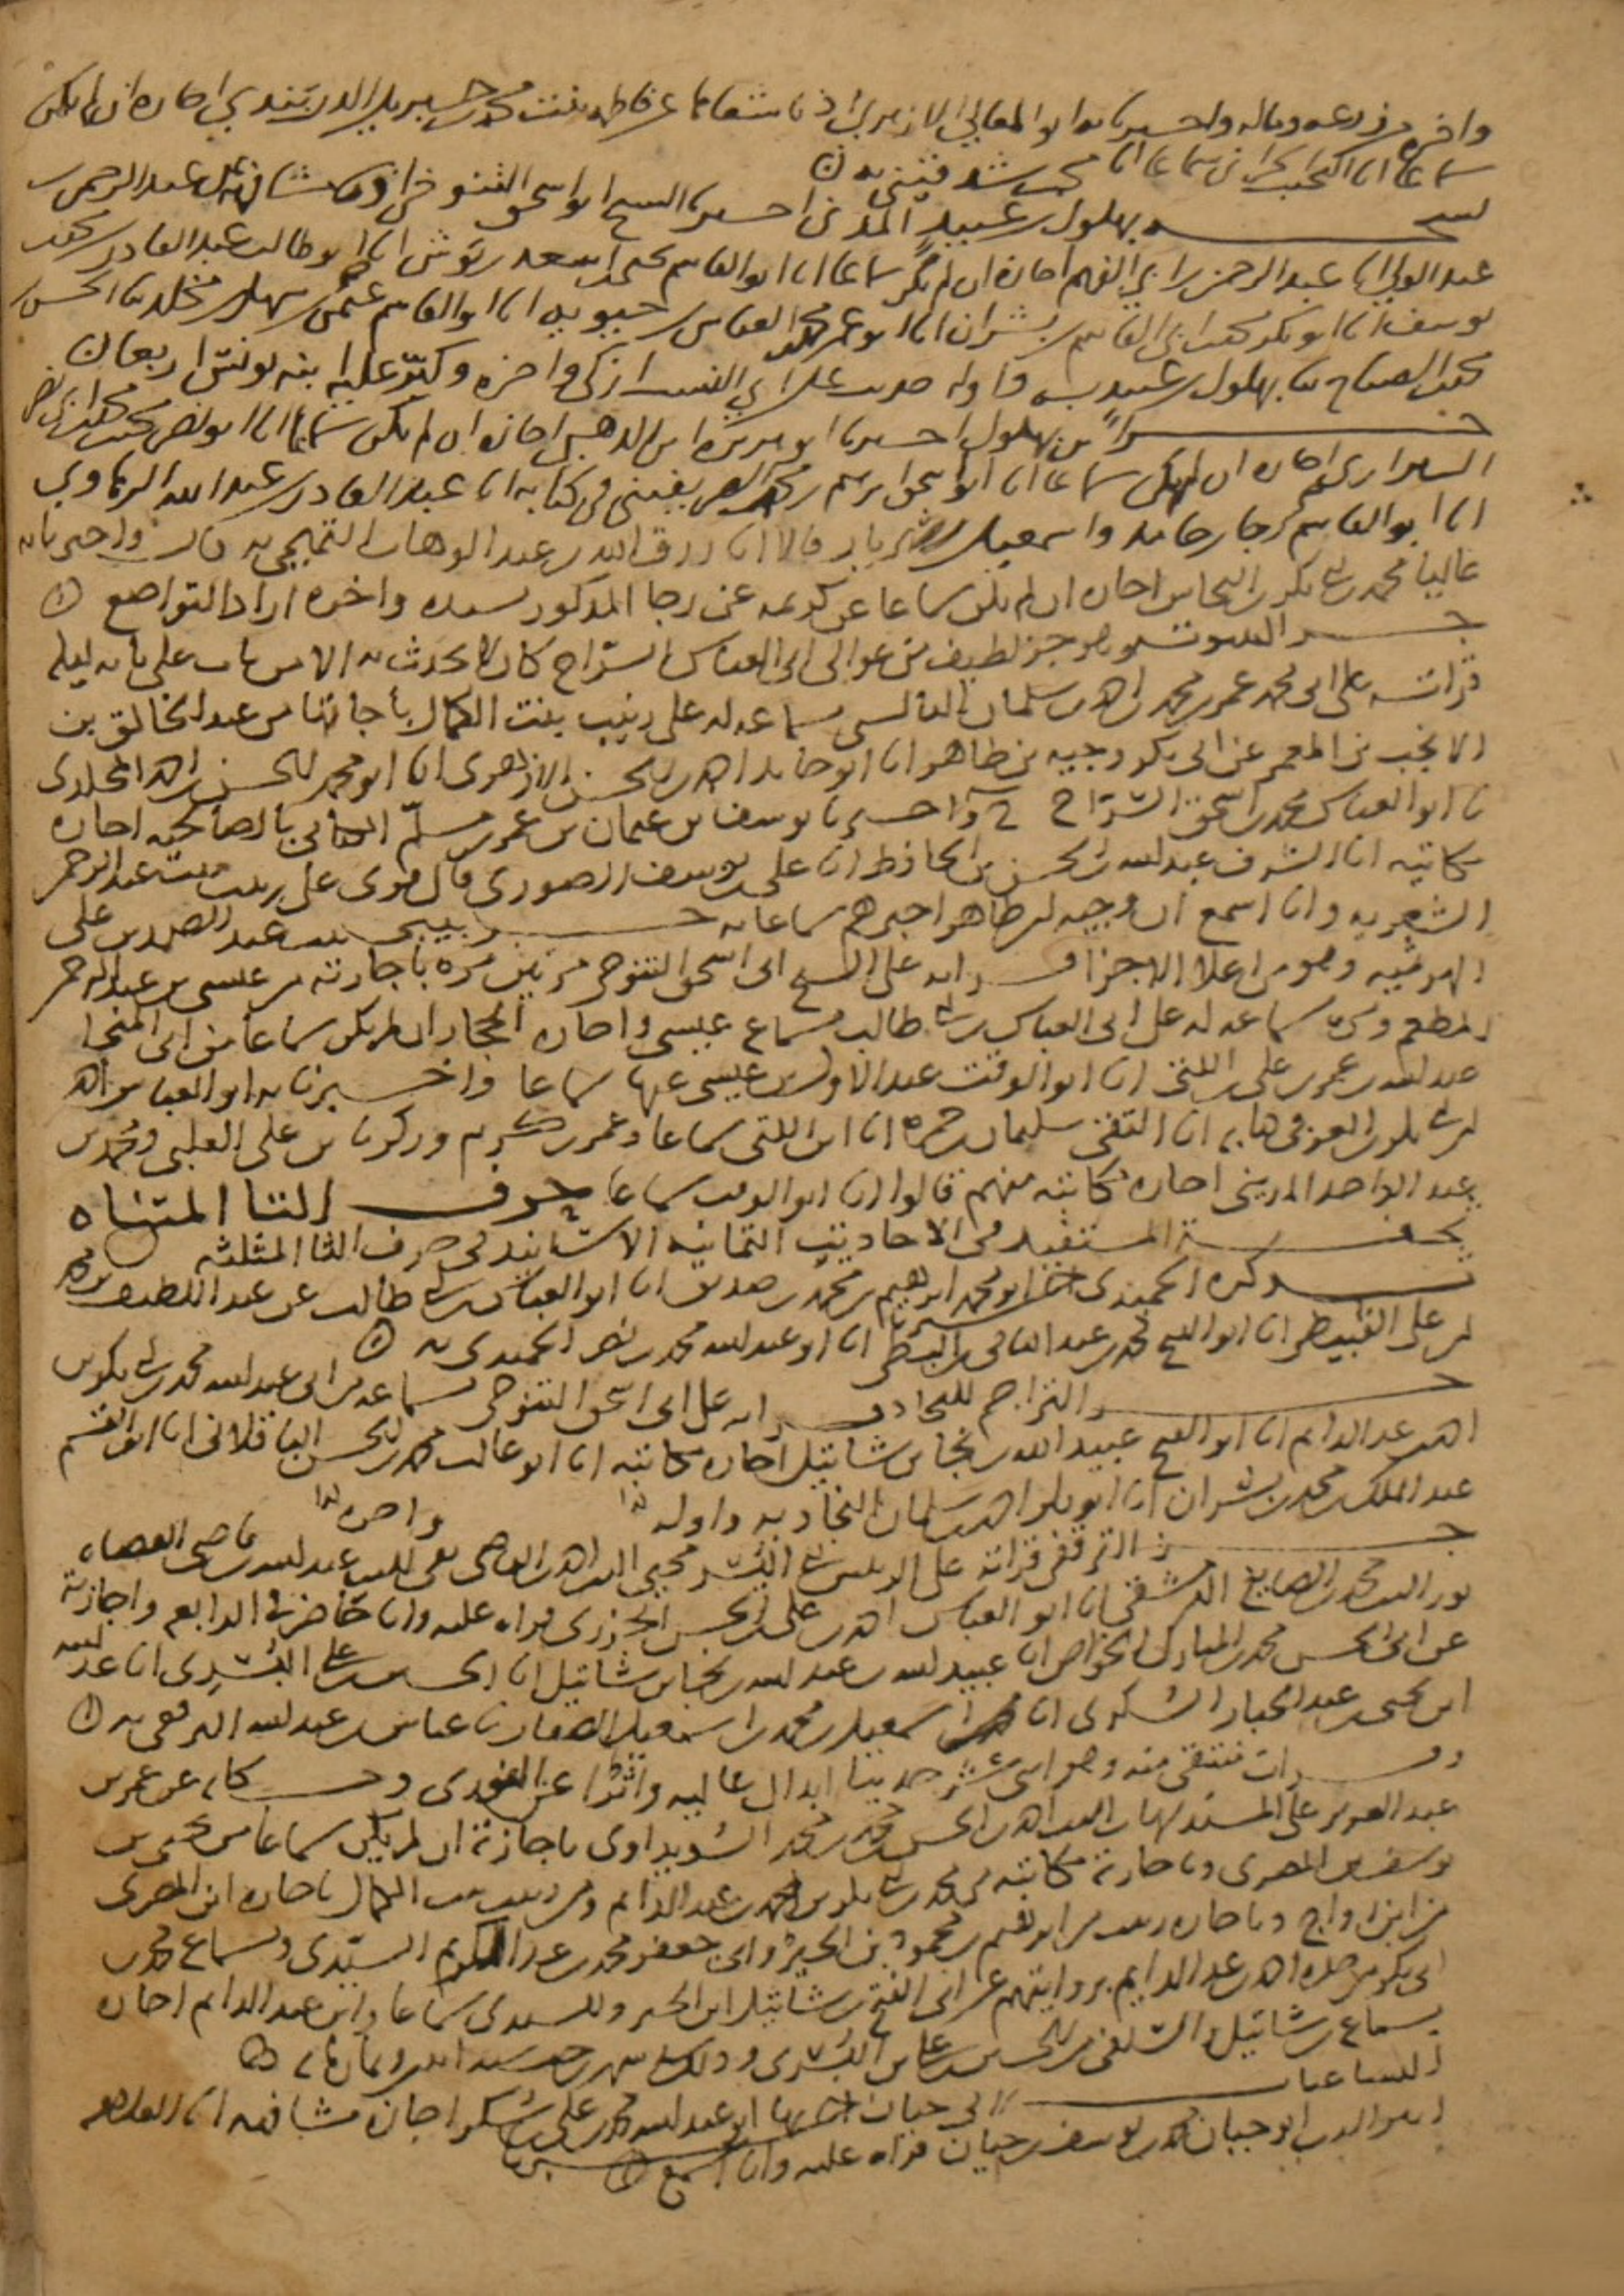 واخره مرفوعه وماله واخبرنا به ابو المعالي الازهري اذنا مشافها عن فاطمه بنت محمد الدربندي اجازه ان لم يكن
سماعا انا النجيب الحراني سماعا انا محمد
نسخه بهلول بن عبيد المدني اخبرنا الشيخ ابو اسحق التنوخي عبد الرحمن
عبد الولي انا عبد الرحمن بن ابي الفهم اجازه ان لم يكن سماعا انا ابو القاسم يحيى بن اسعد بن بوش انا ابو طالب عبد القادر بن محمد بن
يوسف انا ابو بكر محمد ابي القاسم بن بشران انا ابو عمر محمد بن العباس بن حيويه انا ابو القاسم عثمن بن سهل بن مخلد نا الحسن بن
محمد الصباح نا بهلول بن عبيد به واوله حديث علي اي الناس ازكى واخره وكبر عليه ابنه يونس اربعا
جزء بن بهلول اخبرنا ابو هريره ابن الذهبي اجازه ان لم يكن سماعا انا ابو نصر محمد بن محمد
الشيرازي اجازه ان لم يكن سماعا انا ابو اسحق ابرهيم بن محمد الصريفيني في كتابه انا عبد القادر بن عبد الله الرهاوي
انا ابو القاسم رجا بن حامد واسمعيل بن شهريار قالا انا رزق الله بن عبد الوهاب التميمي به قال واخبرنا به
عاليا محمد بن ابي بكر بن النحاس اجازه ان لم يكن سماعا عن كريمه عن رجا المذكور بسنده واخره اراد التواضع
جزء البيتوته وهو جزء لطيف من عوالي ابي العباس السراج كان لا يحدث به الا من بات على بابه ليله
قراته على ابي محمد عمر بن محمد بن احمد بن سلمان البالسي بسماعه له على زينب بنت الكمال باجازتها من عبد الخالق بن
الانجب بن المعمر عن ابي بكر وجيه بن طاهر انا ابو حامد احمد بن الحسن الازهري انا ابو محمد الحسن بن احمد المخلدي
نا ابو العباس محمد بن اسحق السراج ح واخبرنا يوسف بن عثمان بن عمر بن مسلم الكناني بالصالحيه اجازه
مكاتبه انا الشرف عبد الله بن الحسن بن الحافظ انا علي بن يوسف الصوري قال قرئ على زينب بنت عبد الرحمن
الشعريه وانا اسمع ان وجيه بن طاهر اخبرهم سماعا به جزء بيبى بنت عبد الصمد بن علي
الهرثميه وهو من اعلا الاجزاء قراته على الشيخ ابي اسحق التنوخي مرتين مره باجازته من عيسى بن عبد الرحمن
المطعم ومره بسماعه له على ابي العباس بن ابي طالب بسماع عيسى واجازه الحجار ان لم يكن سماعا من ابي المنجا
عبد الله بن عمر بن علي بن اللتي انا ابو الوقت عبد الاول بن عيسى عنها سماعا واخبرنا به ابو العباس احمد
بن ابي بكر بن العز في كتابه انا التقي سليمان بن حمزه انا ابن اللتي سماعا وعمر بن كرم وزكريا بن علي العلبي ومحمد بن
عبد الواحد المديني اجازه مكاتبه منهم قالوا انا ابو الوقت سماعا حرف التا المثناه
تحفه المستفيد في الاحاديث الثمانيه الاسانيد في حرف الثا المثلثه
تذكره الحميدي اخبرنا ابو محمد ابرهيم بن محمد بن صديق انا ابو العباس بن ابي طالب عن عبد اللطيف بن محمد
بن علي القبيطي انا ابو الفتح محمد بن عبد الباقي بن البطي انا ابو عبد الله محمد بن نصر الحميدي به
جزء التراجم للنجاد قراته على ابي اسحق التنوخي بسماعه من ابي عبد الله محمد بن ابي بكر بن
احمد بن عبد الدايم انا ابو الفتح عبيد الله بن نجا بن شاتيل اجازه مكاتبه انا ابو غالب محمد بن الحسن الباقلاني انا ابو القسم
عبد الملك بن محمد بن بشران انا ابو بكر احمد بن سلمان النجاد به واوله كذا واخره كذا
جزء الترقفي قراته على ابي اليسر محيي الدين احمد بن القاضي تقي الدين عبد الله بن قاضي القضاه
نور الدين محمد بن الصايغ الدمشقي انا ابو العباس احمد بن علي بن الحسن الجزري قراه عليه وانا حاضر في الرابعه واجازته
عن ابي الحسن محمد بن المبارك الخواص انا عبيد الله بن عبد الله بن نجا بن شاتيل انا الحسين بن علي البسري انا عبد الله
ابن يحيى بن عبد الجبار السكري انا اسمعيل بن محمد بن اسمعيل الصفار نا عباس بن عبد الله الترقفي به
وقرات منتقى منه وهو اثنى عشر حديثا ابدال عاليه واثرا عن الثوري وحكايه عن عمر بن
عبد العزيز على المسند شهاب الدين احمد بن الحسن بن محمد بن محمد السويداوي باجازته ان لم يكن سماعا من يحيى بن
يوسف بن المصري وباجازته مكاتبه من محمد بن ابي بكر بن احمد بن عبد الدايم ومن زينب بنت الكمال باجازه ابن المصري
من ابن رواج وباجازه زينب من ابرهيم بن محمود بن الخير وابي جعفر محمد بن عبد الكريم السيدي وبسماع محمد بن
ابي بكر من جده احمد بن عبد الدايم بروايتهم عن ابي الفتح بن شاتيل ابن الخير والسيدي سماعا وابن عبد الدايم اجازه
بسماع بن شاتيل والسلفي من الحسين بن علي بن البسري
السباعيات لابي حيان اخبرنا ابو عبد الله محمد بن علي بن سكر اجازه مشافهه انا العلامه
اثير الدين ابو حيان محمد بن يوسف بن حيان قراه عليه وانا اسمع